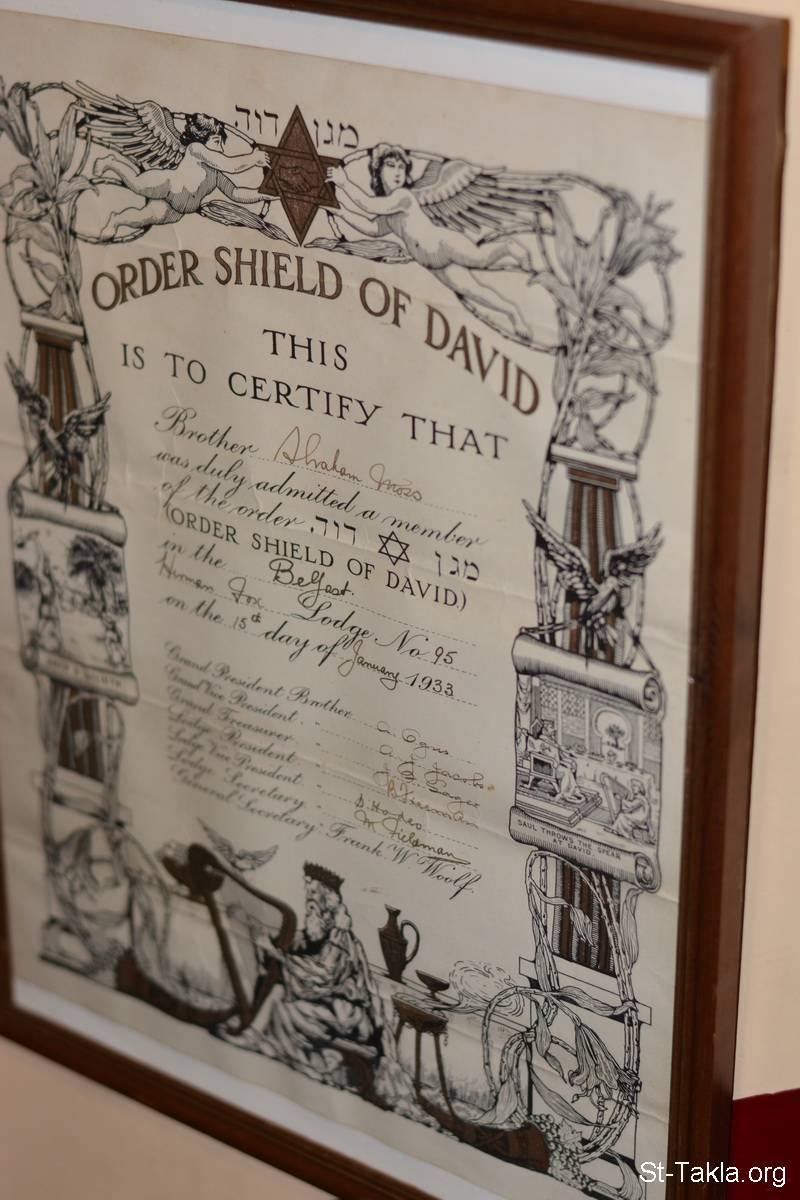 מגן דוד
ORDER SHIELD OF DAVID
THIS
IS TO CERTIFY THAT
Brother Abraham Moss
was duly admitted a member
of the order מגן דוד
(ORDER SHIELD OF DAVID)
in the Belfast
Hyman Fox Lodge No 95
on the 15th day of January 1933
Grand President Brother
Grand Vice President " Jacobs
Grand Treasurer "
Lodge President "
Lodge Vice President "
Lodge Secretary "
General Secretary Frank W Woolf
SAUL THROWS THE SPEAR
AT DAVID.
St-Takla.org